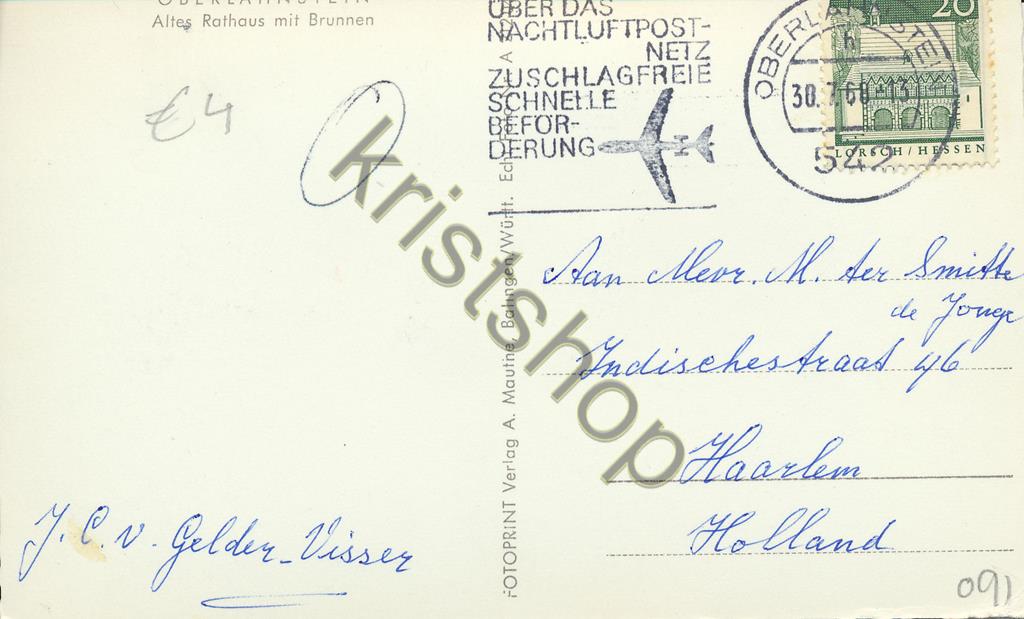 OBERLAHNSTEIN
Altes Rathaus mit Brunnen
€4
ÜBER DAS
NACHTLUFTPOST-
NETZ
ZUSCHLAGFREIE
SCHNELLE
BEFÖR-
DERUNG
OBERLAHNSTEIN
h
542
20
LORSCH / HESSEN
FOTOPRINT Verlag A. Mauthe, Balingen/Württ.
kristshop
Aan Mevr. M. ter Smitte
de Jonge
Indischestraat 46
Haarlem
Holland
J. C. v. Gelder-Visser
091